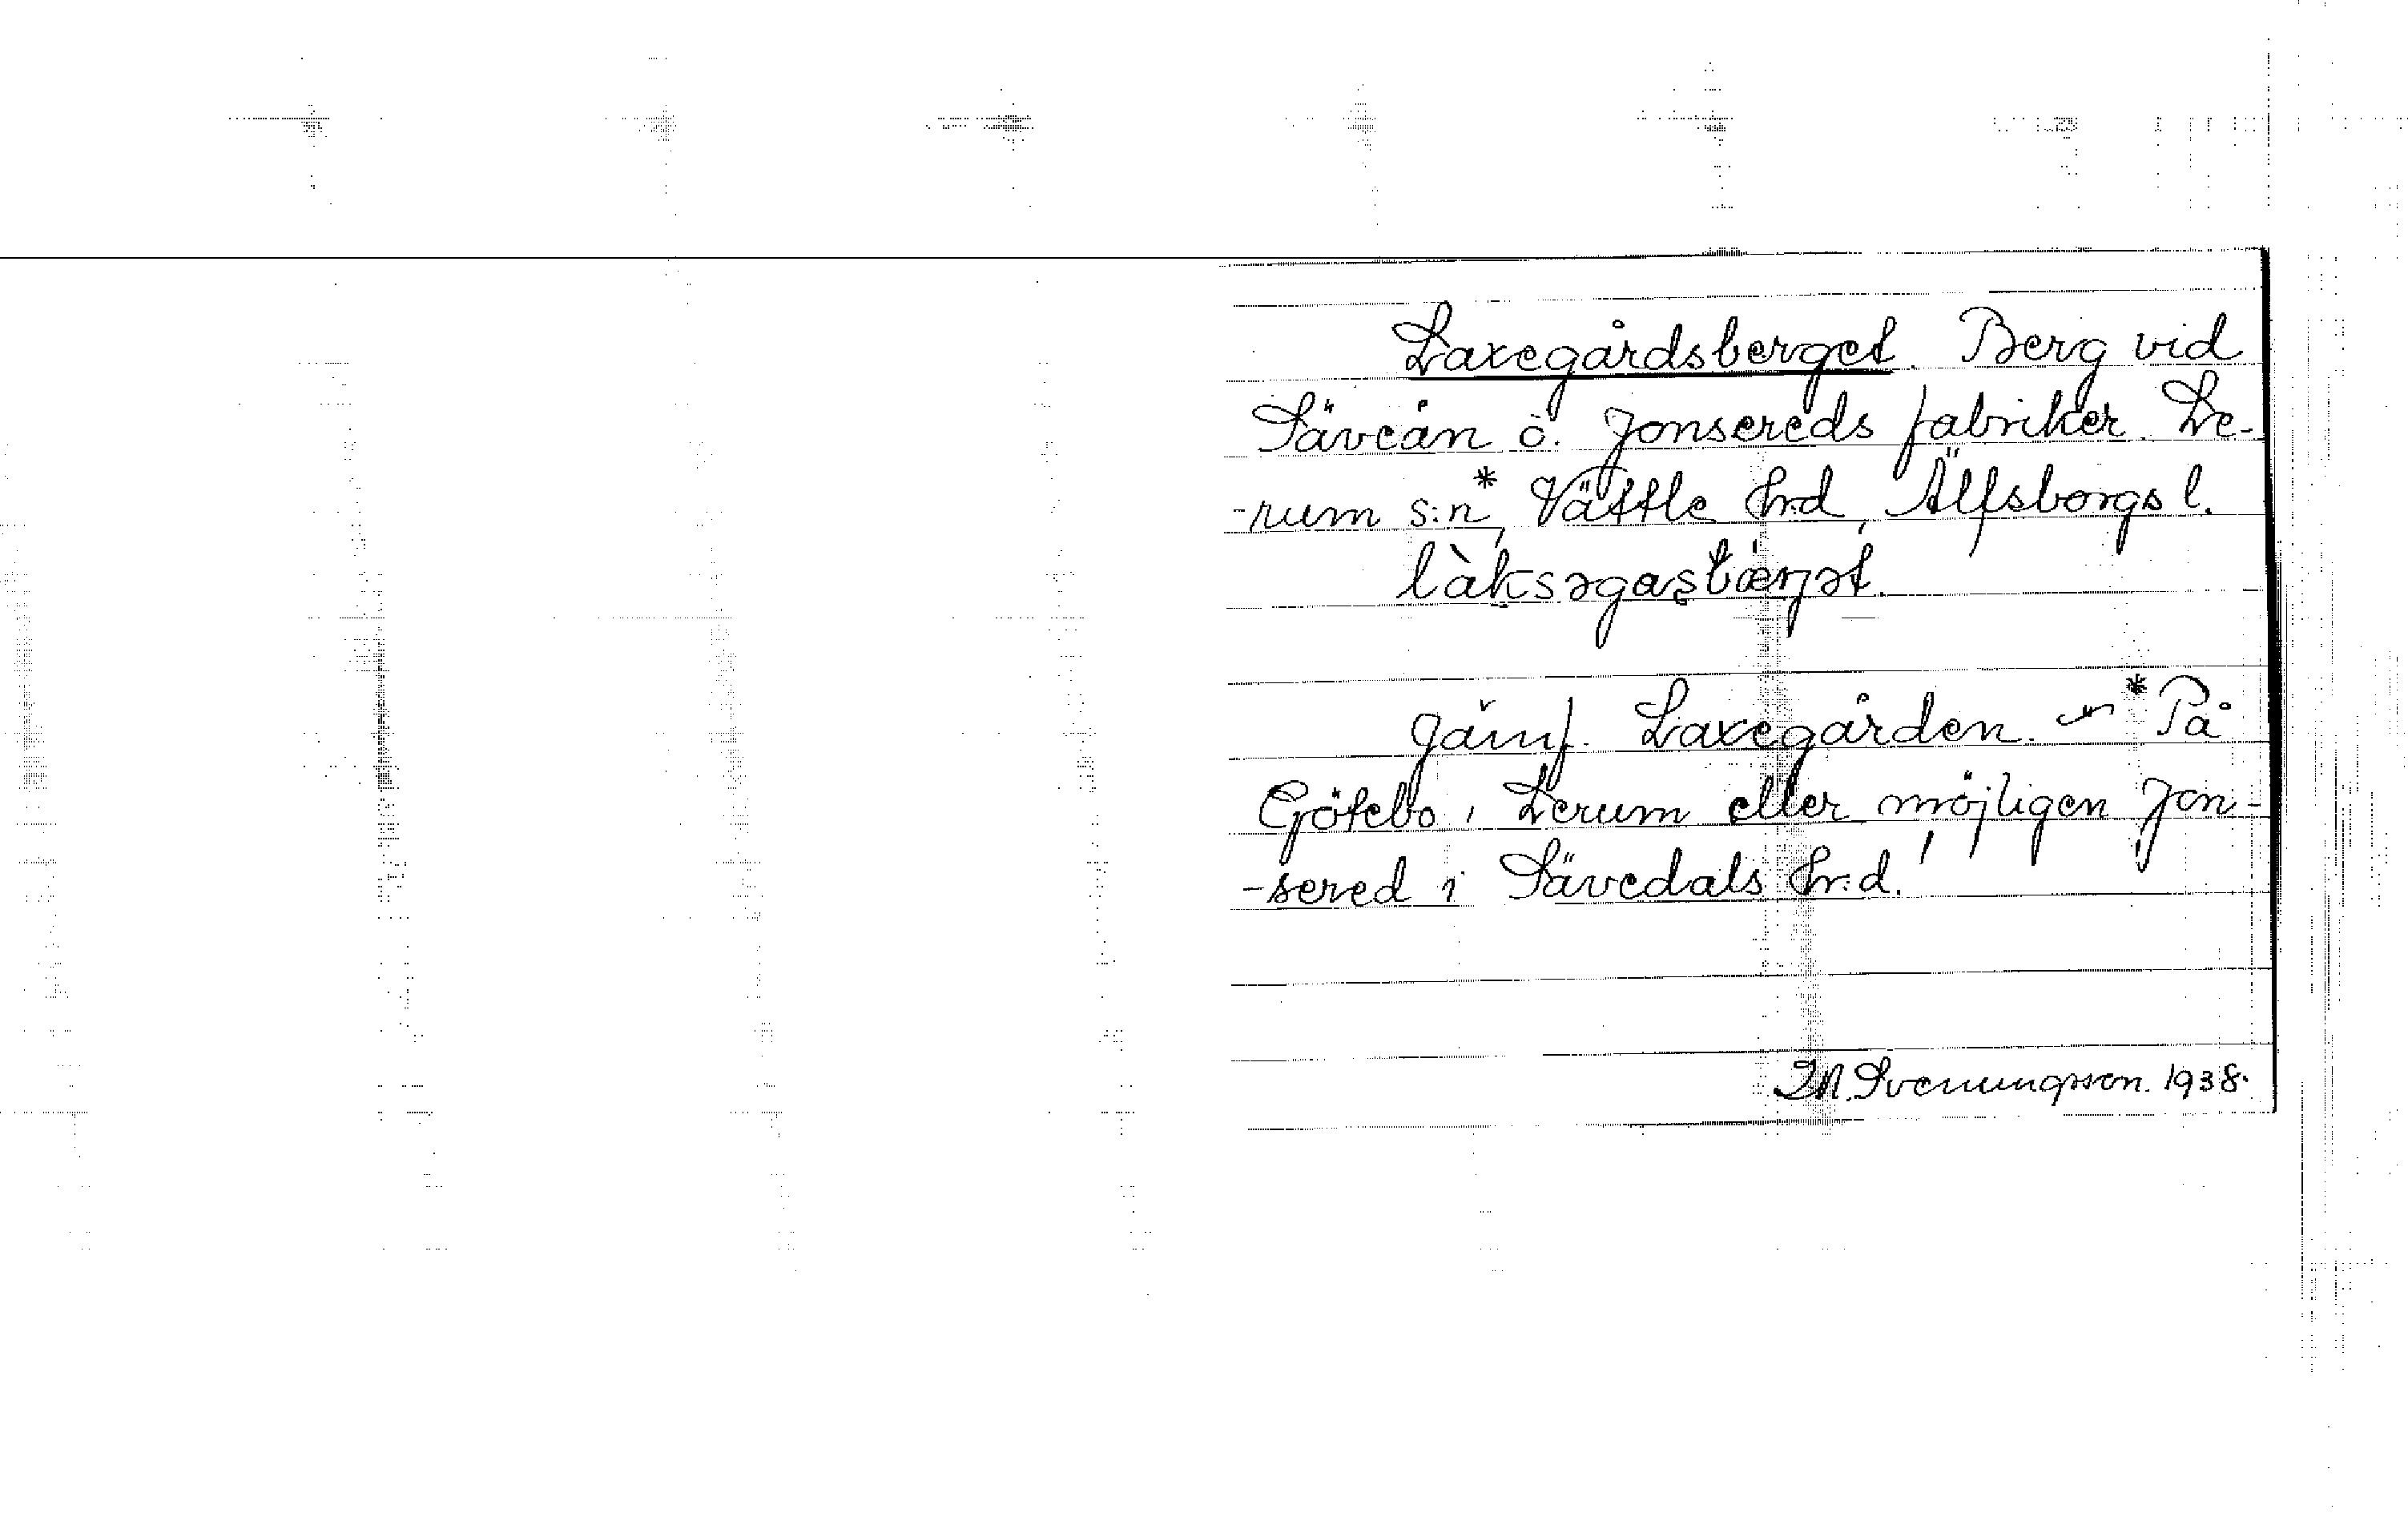 Laxegårdsberget. Berg vid
Säveån ö. Jonsereds fabriker. Le-
-rum s:n*, Vättle h:d, Älfsborgs l.
làksəgasbærjət.
Jämf. Laxegården. ~ *På
Götebo i Lerum eller möjligen Jon-
-sered i Sävedals h:d.!
M. Svenungsson. 1938.